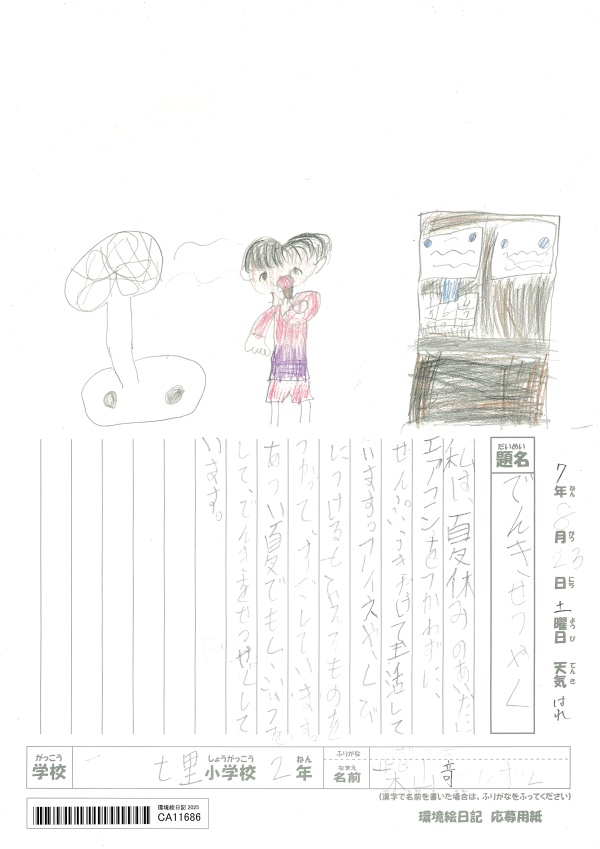 7年ねん 8月がつ 23日にち 土曜日ようび 天気てんき はれ
題名だいめい でんきせつやく
私は、夏休みのあいだに
エアコンをつかわずに、
せんぷうきだけで生活して
います。アイスや、くび
につけるつめたいものを
つかって、すごしています。
あつい夏でもくふうを
して、でんきをせつやくして
います。
学校がっこう 七里小学校しょうがっこう 2年ねん
ふりがな
名前なまえ
(漢字で名前を書いた場合は、ふりがなをふってください)
環境絵日記 2025
CA11686
環境絵日記 応募用紙